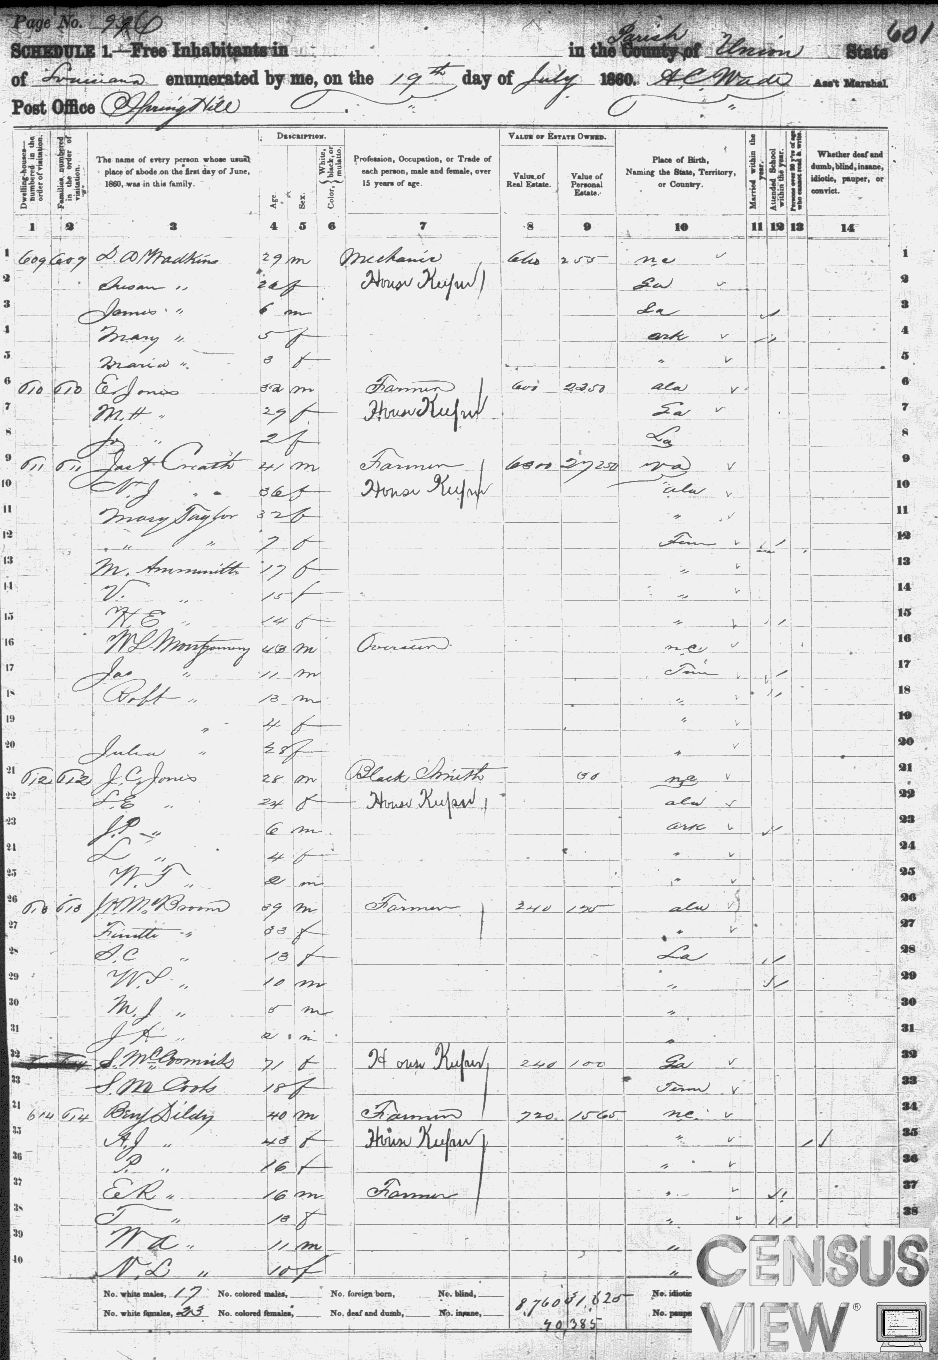 Page No. 926
601
SCHEDULE 1.—Free Inhabitants in in the County of Parish Union State
of Louisiana enumerated by me, on the 19th day of July 1860. A.C. Wade Ass't Marshal.
Post Office Spring Hill
Dwelling-houses—numbered in the order of visitation.
Families numbered in the order of visitation.
The name of every person whose usual place of abode on the first day of June, 1860, was in this family.
DESCRIPTION.
Age.
Sex.
Color, { White, black, or mulatto.
Profession, Occupation, or Trade of each person, male and female, over 15 years of age.
VALUE OF ESTATE OWNED.
Value of Real Estate.
Value of Personal Estate.
Place of Birth, Naming the State, Territory, or Country.
Married within the year.
Attended School within the year.
Persons over 20 y'rs of age who cannot read & write.
Whether deaf and dumb, blind, insane, idiotic, pauper, or convict.
1 2 3 4 5 6 7 8 9 10 11 12 13 14
1 609 609 L. D Wadkins 29 m Mechanic 600 255 nc 1
2 Susan " f House Keeper Ga 2
3 James " 6 m La 3
4 Mary " 5 f ark 4
5 Maria " 3 f " 5
6 610 610 E Jones 32 m Farmer 600 2350 ala 6
7 M. H " 29 f House Keeper Ga 7
8 " 2 f La 8
9 611 611 Jas A Creath 41 m Farmer 6300 27250 va 9
10 N. J " 36 f House Keeper ala 10
11 Mary Taylor 32 f " 11
12 " " 7 f Tenn 12
13 M. 17 f " 13
14 V. " 15 f " 14
15 H. E " 14 f " 15
16 W L Montgomery 43 m Overseer nc 16
17 Jas " 11 m Tenn 17
18 Robt " 13 m " 18
19 " 4 f " 19
20 Julia " 28 f " 20
21 612 612 J. C. Jones 28 m Black Smith nc 21
22 S. E " 24 f House Keeper ala 22
23 J. P. " 6 m ark 23
24 L " 4 f " 24
25 W. T " 2 m " 25
26 613 613 J. H. McBroom 39 m Farmer 240 175 ala 26
27 " 33 f " 27
28 S. C " 13 f La 28
29 W. S " 10 m " 29
30 M. J " 5 m " 30
31 J A " 2 m " 31
32 S. 71 f House Keeper 240 100 Ga 32
33 S. M 18 f Tenn 33
34 614 614 Benj Dildy 40 m Farmer 720 1565 nc 34
35 A. J " 43 f House Keeper " 35
36 P. " 16 f " 36
37 E R " 16 m Farmer " 37
38 T " 13 f " 38
39 W A " 11 m "
40 N. L " 10 f "
No. white males, 17 No. colored males, No. foreign born, No. blind, No. idiotic
No. white females, 23 No. colored females, No. deaf and dumb, No. insane, No. paupe
8,760 31,625
40,385
CENSUS
VIEW®